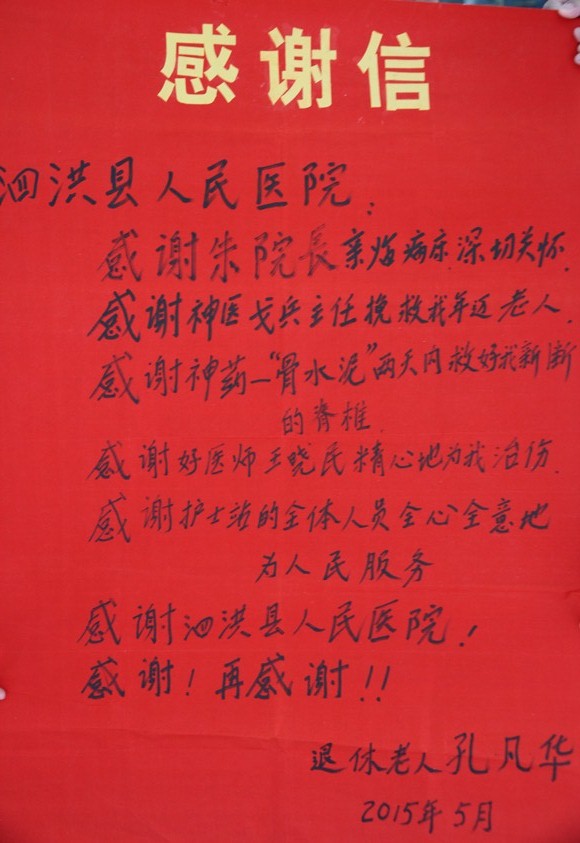 感谢信
泗洪县人民医院:
感谢朱院長亲临病床.深切关怀.
感谢神医戈兵主任挽救我年迈老人.
感谢神药—“骨水泥”两天内救好我新断
的脊椎.
感谢好医师王晓民精心地为我治伤.
感谢护士站的全体人员全心全意地
为人民服务
感谢泗洪县人民医院!
感谢!再感谢!!
退休老人孔凡华
2015年5月